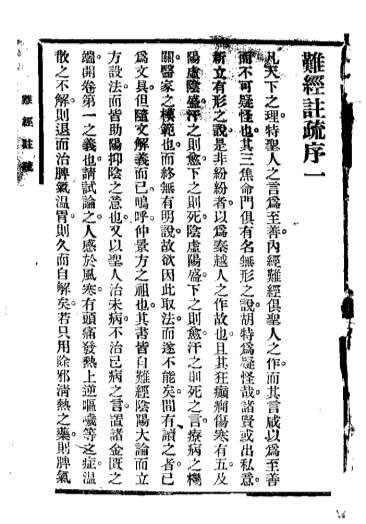 難經註疏序一
凡天下之理特聖人之言爲至善內經難經俱聖人之作而其言咸以爲至善
而不可疑怪也其三焦命門俱有名無形之說胡特爲疑怪哉諸賢或出私意
新立有形之說是非紛紛者以爲秦越人之作故也且其狂癲癇傷寒有五及
陽虛陰盛汗之則愈下之則死陰虛陽盛下之則愈汗之則死之言療病之機
關醫家之模範也而終無有明說故欲因此取法而遂不能矣間有讀之者已
爲文具但隨文解義而已嗚呼仲景方之祖也其書皆自難經陰陽大論而立
方設法而皆助陽抑陰之意也又以聖人治未病不治已病之言置諸金匱之
端開卷第一之義也請試論之人感於風寒有頭痛發熱上逆嘔噦等之症溫
散之不解則退而治脾氣溫胃則久而自解矣若只用除邪清熱之藥則脾氣
難經註疏